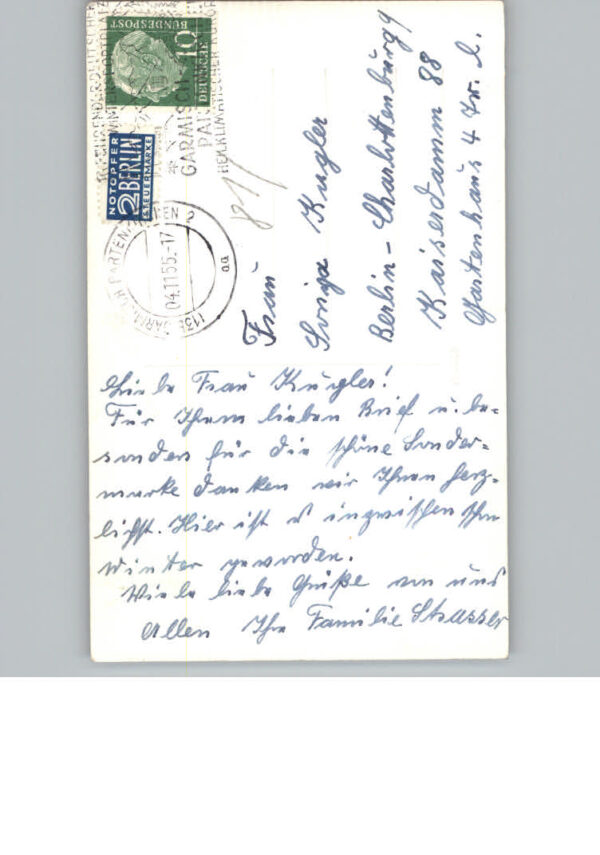 Liebe Frau Kugler!
Für Ihren lieben Brief u. be-
sonders für die schöne Sonder-
marke danken wir Ihnen herz-
lichst. Hier ist es inzwischen schon
Winter geworden.
Viele liebe Grüße von uns
Allen Ihre Familie Strasser
Frau
Kugler
Berlin-Charlottenburg 9
Kaiserdamm 88
Gartenhaus 4 Tr. l.
10
DEUTSCHE
BUNDESPOST
NOTOPFER
2 BERLIN
STEUERMARKE
GARMISCH
HEILKLIMATISCHER KURORT
04.11.55.-17